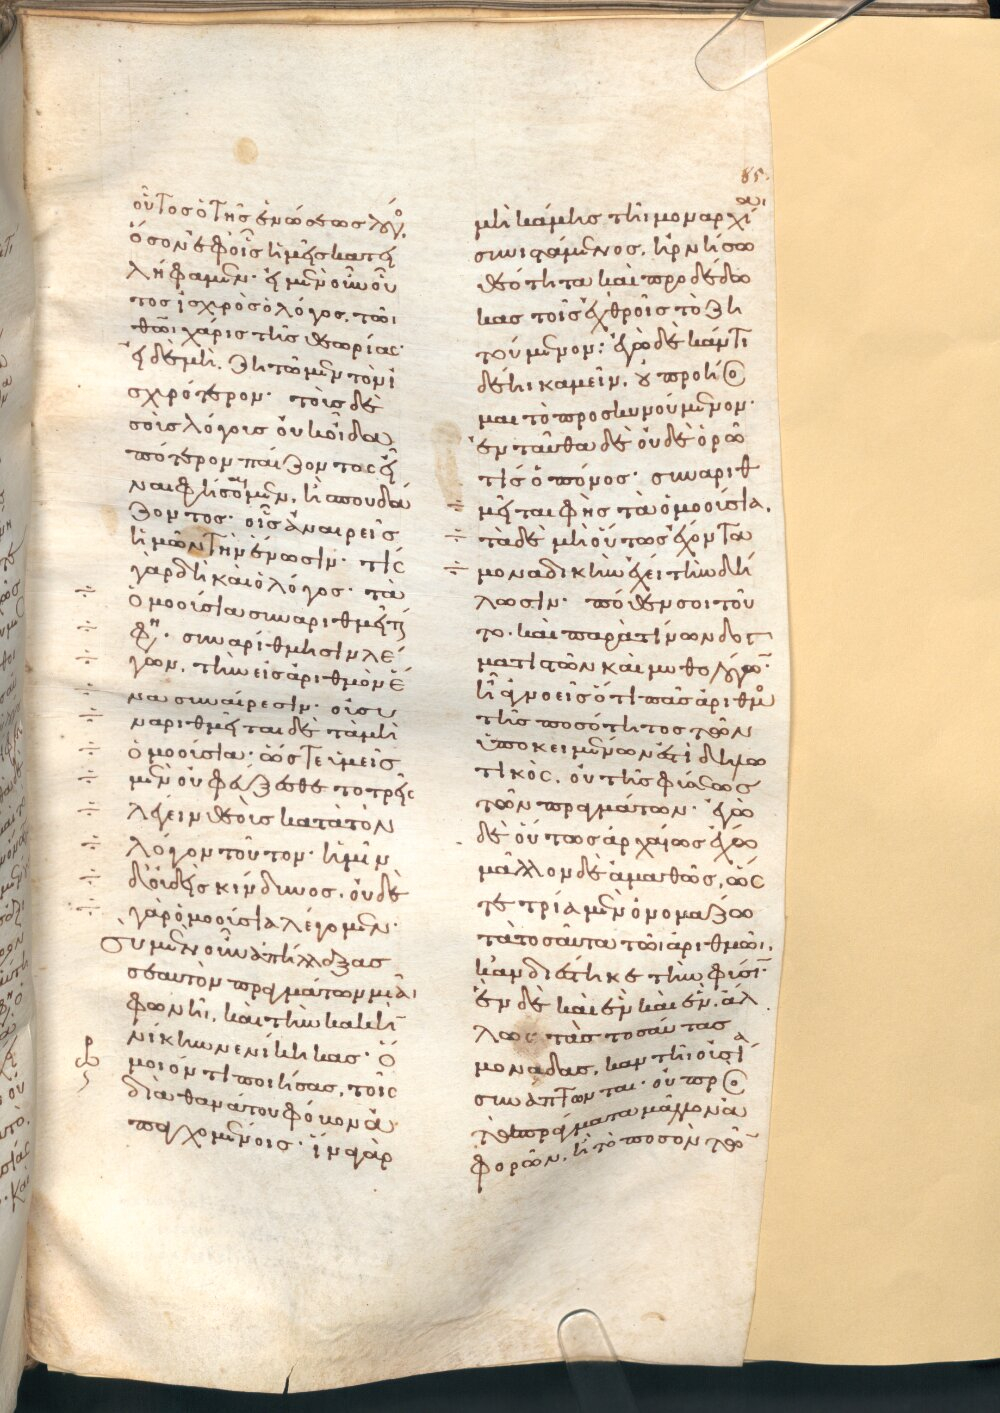 85
οὗτος ὁ τῆς ἑνώσεως λόγο
ὅσον ἐφ' οἷς ἡμεῖς κατει
λήφαμεν· εἰ μὲν οὖν οὗ
τος ἰσχρὸς ὁ λόγος, τῶι
θῶι χάρις τῆς θεωρίας·
εἰ δὲ μὴ, ζητῶμεν τὸν ἰ
σχρότερον· τοὺς δὲ
σοὺς λόγους οὐκ οἶδα
πότερον παίζοντος εἶ
ναι φήσομεν, ἢ σπουδά
ζοντος· οἷς ἀναιρεῖς
ἡμῶν τὴν ἕνωσιν· τίς
γὰρ δὴ καὶ ὁ λόγος· τὰ
ὁμοούσια συναριθμεῖται
φὴς· συναρίθμησιν λέ
γων, τὴν εἰς ἀριθμὸν ἕ
να συναίρεσιν· οὐ συ
ναριθμεῖται δὲ τὰ μὴ
ὁμοούσια· ὥστε ὑμεῖς
μὲν οὐ φεύξεσθε τὸ τρεῖς
λέγειν θεοὺς κατὰ τὸν
λόγον τοῦτον· ἡμῖν
δὲ οὐδεὶς κίνδυνος, οὐδὲ
γὰρ ὁμοούσια λέγομεν·
Σὺ μὲν οὖν ἀπήλλαξας
σεαυτὸν πραγμάτων μιᾶι
φωνῆι, καὶ τὴν κακὴν
νίκην νενίκηκας· ὅ
μοιόν τι ποιήσας, τοῖς
διὰ θανάτου φόβον ἀ
παγχομένοις· ἵνα γὰρ
μὴ κάμηις τῆι μοναρχίαι
συνιστάμενος, ἠρνήσω
θεότητα καὶ προδέδω
κας τοῖς ἐχθροῖς τὸ ζη
τούμενον· ἐγὼ δὲ κἄν τι
δέηι καμεῖν, οὐ προήσο
μαι τὸ προσκυνούμενον·
ἐνταῦθα δὲ οὐδὲ ὁρῶ
τίς ὁ πόνος· συναριθ
μεῖται φὴς τὰ ὁμοούσια,
τὰ δὲ μὴ οὕτως ἔχοντα
μοναδικὴν ἔχει τὴν δή
λωσιν· πόθεν σοι τοῦ
το· καὶ παρὰ τίνων δογ
ματιστῶν καὶ μυθολόγων·
ἢ ἀγνοεῖς ὅτι πᾶς ἀριθμὸς
τῆς ποσότητος τῶν
ὑποκειμένων ἐστὶ δηλω
τικὸς, οὐ τῆς φύσεως
τῶν πραγμάτων· ἐγὼ
δὲ οὕτως ἀρχαίως ἔχω
μᾶλλον δὲ ἀμαθῶς, ὥς
τε τρία μὲν ὀνομάζω
τὰ τοσαῦτα τῶι ἀριθμῶι,
κἂν διέστηκε τὴν φύσιν·
ἓν δὲ καὶ ἓν καὶ ἓν, ἄλ
λως τὰς τοσαύτας
μονάδας, κἂν τῆι οὐσίαι
συνάπτωνται· οὐ πρὸς
τὰ πράγματα μᾶλλον ἀ
φορῶν, ἢ τὸ ποσὸν τῶν